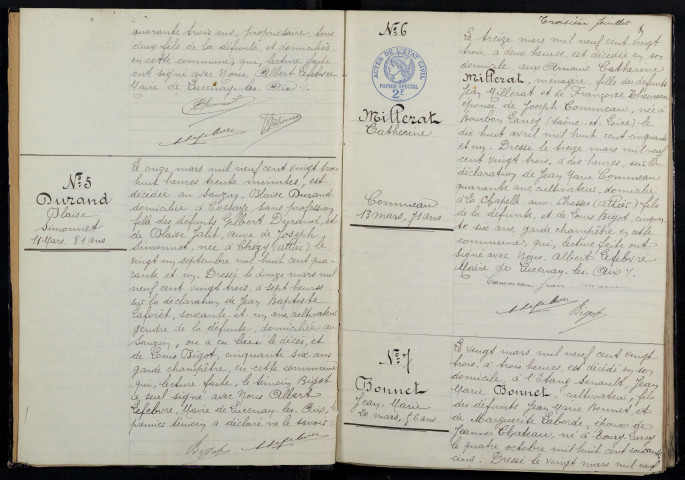 quarante trois ans, propriétaire, tous
deux fils de la défunte, et domiciliés
en cette commune, qui, lecture faite
ont signé avec Nous, Albert Lefebvre
Maire de Lucenay-les-Aix ./.
N° 5
Durand
Blaise
Simonnet
11 Mars. 81 ans
Le onze mars mil neuf cent vingt trois
huit heures trente minutes, est
décédée au Sauzin, Blaise Durand
domiciliée à Cossaye sans profession
fille des défunts Gilbert Durand et
de Blaise Jalit, veuve de Joseph
Simonnet, née à Chézy (Allier) le
vingt un septembre mil huit cent qua-
rante et un. Dressé le douze mars mil
neuf cent vingt trois, à sept heures
sur la déclaration de Jean Baptiste
Laforêt, soixante et un ans, cultivateur
gendre de la défunte, domicilié au
Sauzin, où a eu lieu le décès, et
de Louis Bigot, cinquante six ans
garde champêtre, en cette commune
qui, lecture faite, le témoin Bigot
le seul signé avec Nous Albert
Lefebvre, Maire de Lucenay-les-Aix, le
premier témoin a déclaré ne le savoir ./.
Bigot
Troisième feuillet
N° 6
ACTES DE L'ETAT CIVIL
PAPIER SPECIAL
2F
Millerat
Catherine
Commeau
13 mars, 71 ans
Le treize mars mil neuf cent vingt
trois à deux heures, est décédée en son
domicile aux Arnauds Catherine
Millerat, ménagère, fille des défunts
Jean Millerat et de Françoise
épouse de Joseph Commeau, née à
Bourbon Lancy (Saône-et-Loire) le
dix huit avril mil huit cent cinquante
et un. Dressé le treize mars mil neuf
cent vingt trois, à dix heures, sur la
déclaration de Jean Marie Commeau
quarante ans, cultivateur, domicilié
à La Chapelle aux Chasses (Allier) fils
de la défunte, et de Louis Bigot, cinquan-
te six ans, garde champêtre en cette
commune, qui, lecture faite ont
signé avec Nous, Albert Lefebvre
Maire de Lucenay-les-Aix ./.
Commeau Jean marie
Bigot
N° 7
Bonnet
Jean-Marie
20 mars, 56 ans
Le vingt mars mil neuf cent vingt
trois, à trois heures, est décédé en son
domicile, à l'Etang Senault, Jean
Marie Bonnet, cultivateur, fils
des défunts Jean Marie Bonnet, et
de Marguerite Laborde, époux de
Jeanne Chateau, né à Toury-Lurcy
le quatre octobre mil huit cent soixante
cinq. Dressé le vingt mars mil neuf